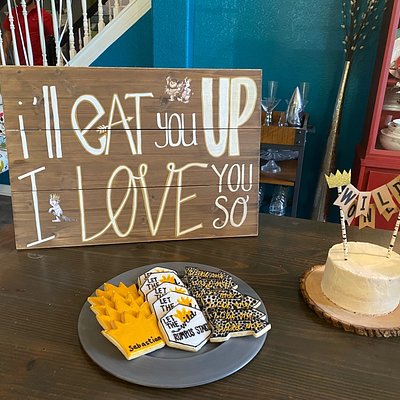 i'll EAT you UP
I LOVE YOU SO
WILD
ONE
LET THE
RUMPUS START
Sebastian